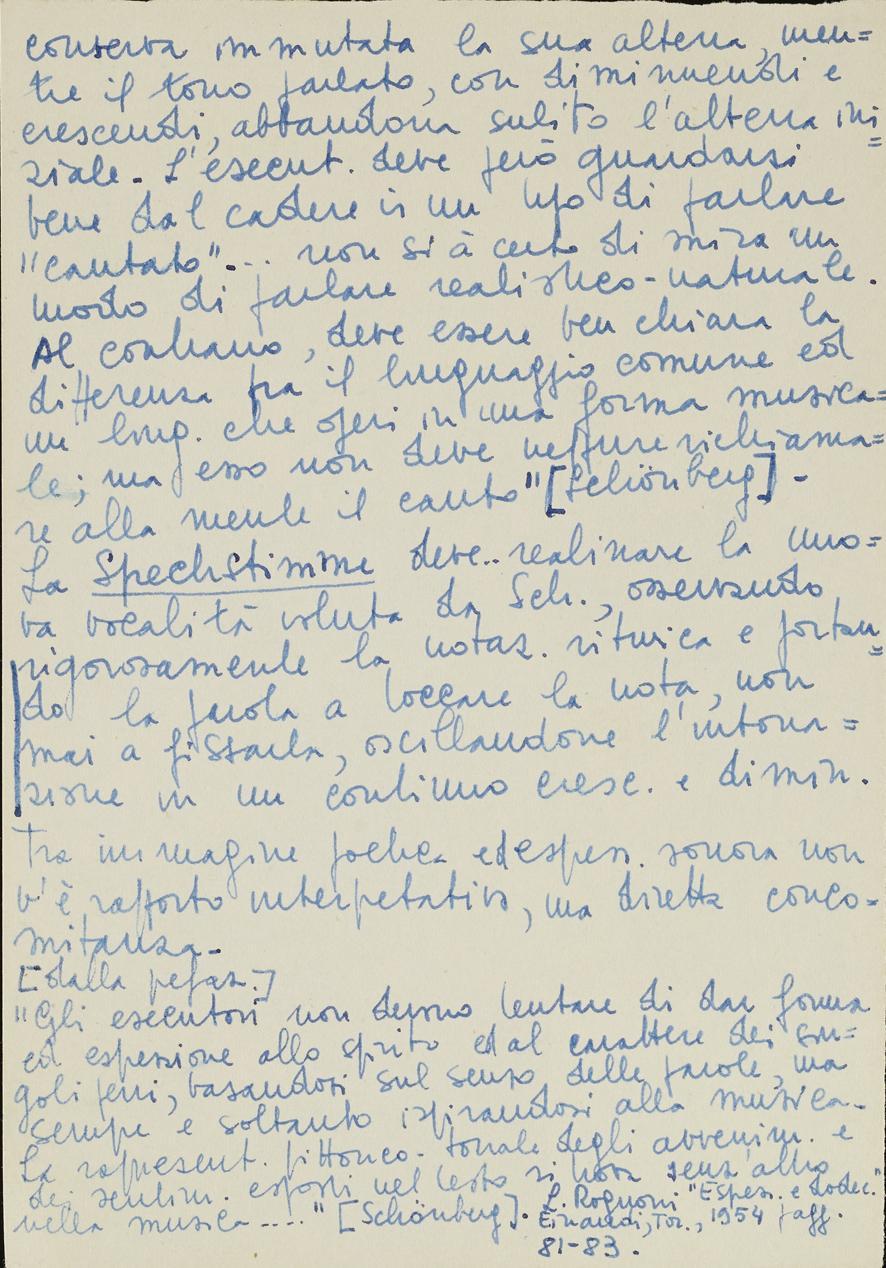 conserva immutata la sua altezza, men=
tre il tono parlato, con diminuendi e
crescendi, abbandona subito l'altezza ini=
ziale. L'esecut. deve però guardarsi
bene dal cadere in un tipo di parlare
"cantato"... non si à certo di mira un
modo di parlare realistico-naturale.
Al contrario, deve essere ben chiara la
differenza fra il linguaggio comune ed
un ling. che operi in una forma musica=
le; ma esso non deve neppure richiama=
re alla mente il canto" [Schönberg].-
La Spechstimme deve.. realizzare la nuo=
va vocalità voluta da Sch., osservando
rigorosamente la notaz. ritmica e portan=
do la parola a toccare la nota, non
mai a fissarla, oscillandone l'intona=
zione in un continuo cresc. e dimin.
Tra immagine poetica ed espress. sonora non
v'è rapporto interpetativo, ma diretta conco-
mitanza.-
[dalla prefaz.]
"Gli esecutori non devono tentare di dar forma
ed espressione allo spirito ed al carattere dei sin=
goli pezzi, basandosi sul senso delle parole, ma
sempre e soltanto ispirandosi alla musica.-
La rappresent. pittorico-tonale degli avvenim. e
dei sentim. esposti nel testo si trova senz'altro
nella musica ...." [Schönberg]. L. Rognoni "Espress. e dodec."
Einaudi, Tor., 1954 pagg.
81-83.